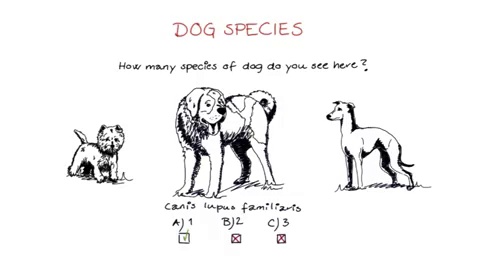 DOG SPECIES
How many species of dog do you see here?
Canis lupus familiaris
A) 1 B) 2 C) 3